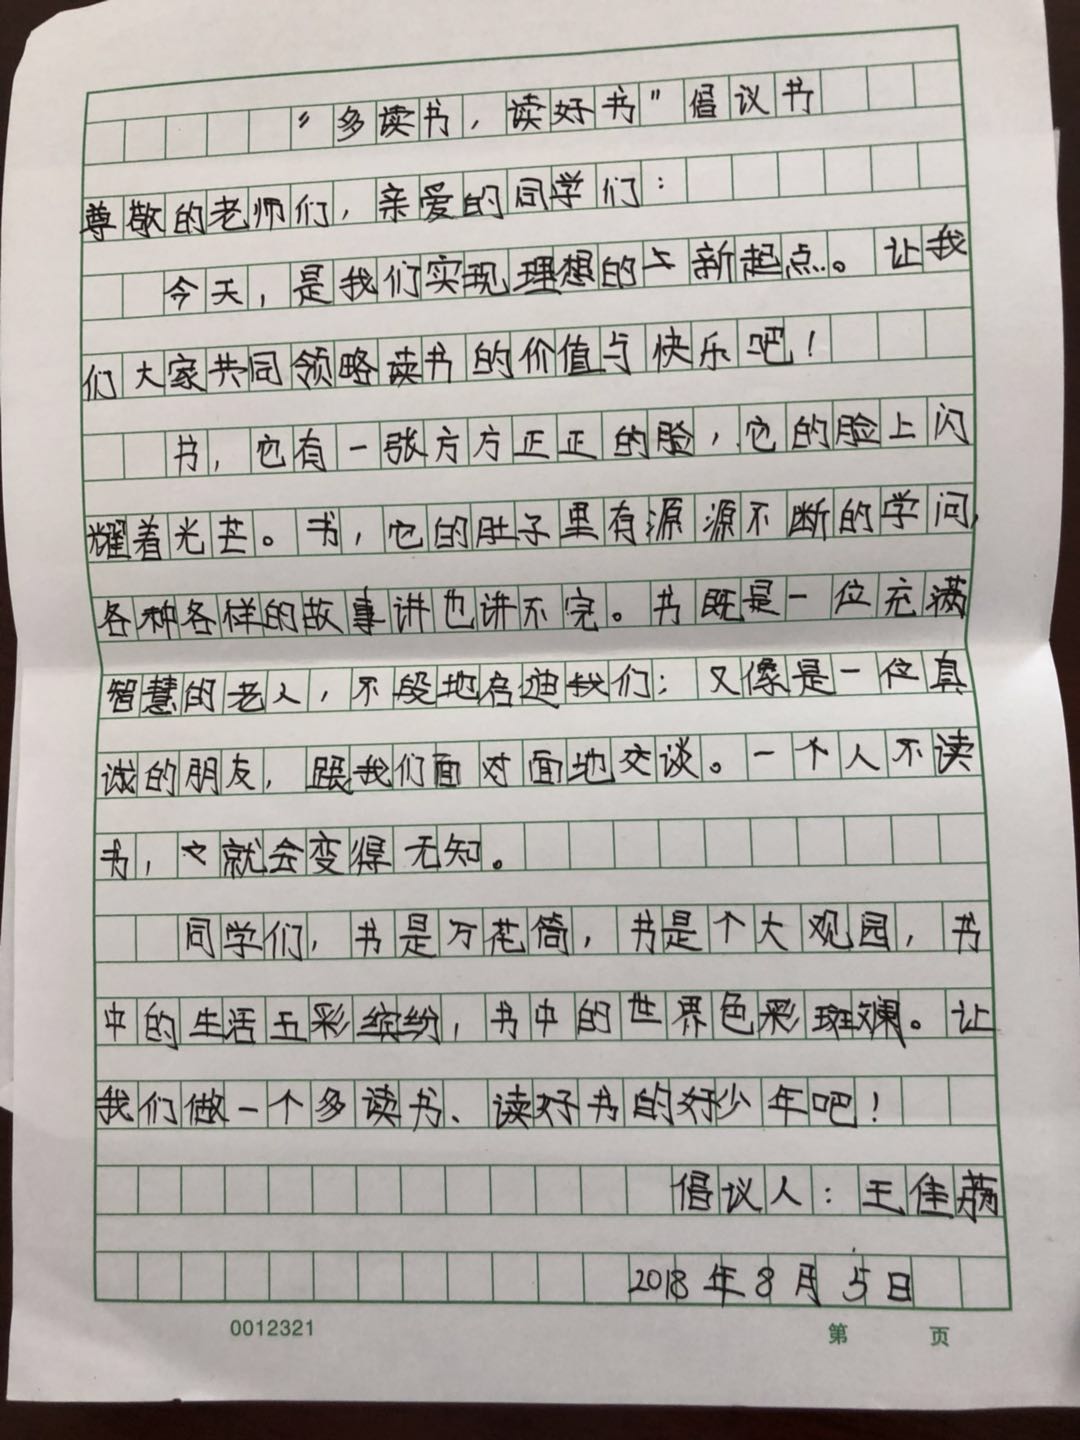 “多读书，读好书”倡议书
尊敬的老师们，亲爱的同学们：
今天，是我们实现理想的新起点。让我
们大家共同领略读书的价值与快乐吧！
书，它有一张方方正正的脸，它的脸上闪
耀着光芒。书，它的肚子里有源源不断的学问，
各种各样的故事讲也讲不完。书既是一位充满
智慧的老人，不段地启迪我们；又像是一位真
诚的朋友，跟我们面对面地交谈。一个人不读
书，就会变得无知。
同学们，书是万花筒，书是个大观园，书
中的生活五彩缤纷，书中的世界色彩斑斓。让
我们做一个多读书、读好书的好少年吧！
倡议人：王佳
2018年8月5日
0012321
第 页